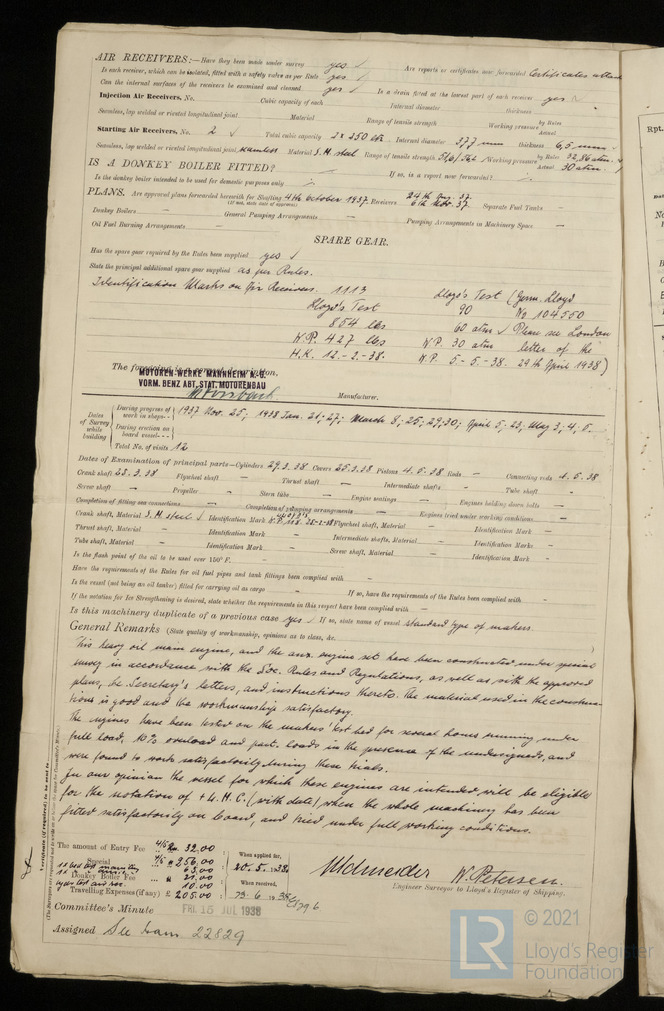 AIR RECEIVERS:—Have they been made under survey yes ✓ Are reports or certificates now forwarded Certificates
Is each receiver, which can be isolated, fitted with a safety valve as per Rule yes ✓
Can the internal surfaces of the receivers be examined and cleaned yes ✓ Is a drain fitted at the lowest part of each receiver yes
Injection Air Receivers, No. Cubic capacity of each Internal diameter thickness
Seamless, lap welded or riveted longitudinal joint Material Range of tensile strength Working pressure by Rules Actual
Starting Air Receivers, No. 2 ✓ Total cubic capacity 2 x 250 Internal diameter 377 mm thickness 6,5 mm
Seamless, lap welded or riveted longitudinal joint seamless Material S.M. steel Range of tensile strength Working pressure by Rules 32,86 atm. Actual 30 atm.
IS A DONKEY BOILER FITTED?
Is the donkey boiler intended to be used for domestic purposes only If so, is a report now forwarded?
PLANS. Are approved plans forwarded herewith for Shafting 4th October 1937. Receivers 24th 37. 6th Nov. 37. Separate Fuel Tanks —
(If not, state date of approval)
Donkey Boilers — General Pumping Arrangements — Pumping Arrangements in Machinery Space —
Oil Fuel Burning Arrangements —
SPARE GEAR.
Has the spare gear required by the Rules been supplied yes ✓
State the principal additional spare gear supplied as per Rules.
Identification Marks on Air Receivers. 1113 Lloyd's Test (Germ. Lloyd
Lloyd's Test 90 No 104550
854 lbs 60 atm ✓ Please see London
W.P. 427 lbs W.P. 30 atm letter of the
H.K. 12.-2.-38. W.P. 5.-5.-38. 29th April 1938)
The foregoing is a correct description,
MOTOREN-WERKE MANNHEIM A.-G.
VORM. BENZ ABT. STAT. MOTORENBAU
Manufacturer.
Dates of Survey while building
During progress of work in shops-- 1937 Nov. 25; 1938 Jan. 21; 27; March 8; 25; 29; 30; April 5; 23; May 3; 4; 5.
During erection on board vessel---
Total No. of visits 12
Dates of Examination of principal parts—Cylinders 29.3.38 Covers 25.3.38 Pistons 4.5.38 Rods — Connecting rods 4.5.38
Crank shaft 23.3.38 Flywheel shaft — Thrust shaft — Intermediate shafts — Tube shaft —
Screw shaft — Propeller — Stern tube — Engine seatings — Engines holding down bolts —
Completion of fitting sea connections — Completion of pumping arrangements — Engines tried under working conditions —
Crank shaft, Material S.M. steel ✓ Identification Mark Flywheel shaft, Material — Identification Mark —
Thrust shaft, Material — Identification Mark — Intermediate shafts, Material — Identification Marks —
Tube shaft, Material — Identification Mark — Screw shaft, Material — Identification Mark —
Is the flash point of the oil to be used over 150° F. —
Have the requirements of the Rules for oil fuel pipes and tank fittings been complied with —
Is the vessel (not being an oil tanker) fitted for carrying oil as cargo — If so, have the requirements of the Rules been complied with —
If the notation for Ice Strengthening is desired, state whether the requirements in this respect have been complied with —
Is this machinery duplicate of a previous case yes ✓ If so, state name of vessel standard type of makers.
General Remarks (State quality of workmanship, opinions as to class, &c.
This heavy oil main engine, and the aux. engine set have been constructed under special
survey in accordance with the Soc. Rules and Regulations, as well as with the approved
plans, the Secretary's letters, and instructions thereto. The material used in the construc-
tions is good and the workmanship satisfactory.
The engines have been tested on the makers' test bed for several hours running under
full load, 10% overload and part. loads in the presence of the undersigneds, and
were found to work satisfactorily during these trials.
In our opinion the vessel for which these engines are intended will be eligible
for the notation of + L.M.C. (with date) when the whole machinery has been
fitted satisfactorily on board, and tried under full working conditions.
The amount of Entry Fee 4/5 32.00
Special 4/5 256.00
63.00
Donkey Boiler Fee 21.00
10.00
Travelling Expenses (if any) £ 205.00
When applied for, 20.5.1938
When received, 13.6.1938
W. Petersen.
Engineer Surveyor to Lloyd's Register of Shipping.
Committee's Minute FRI. 15 JUL 1938
Assigned See Ham 22829
© 2021
LR
Lloyd's Register
Foundation
Rpt.